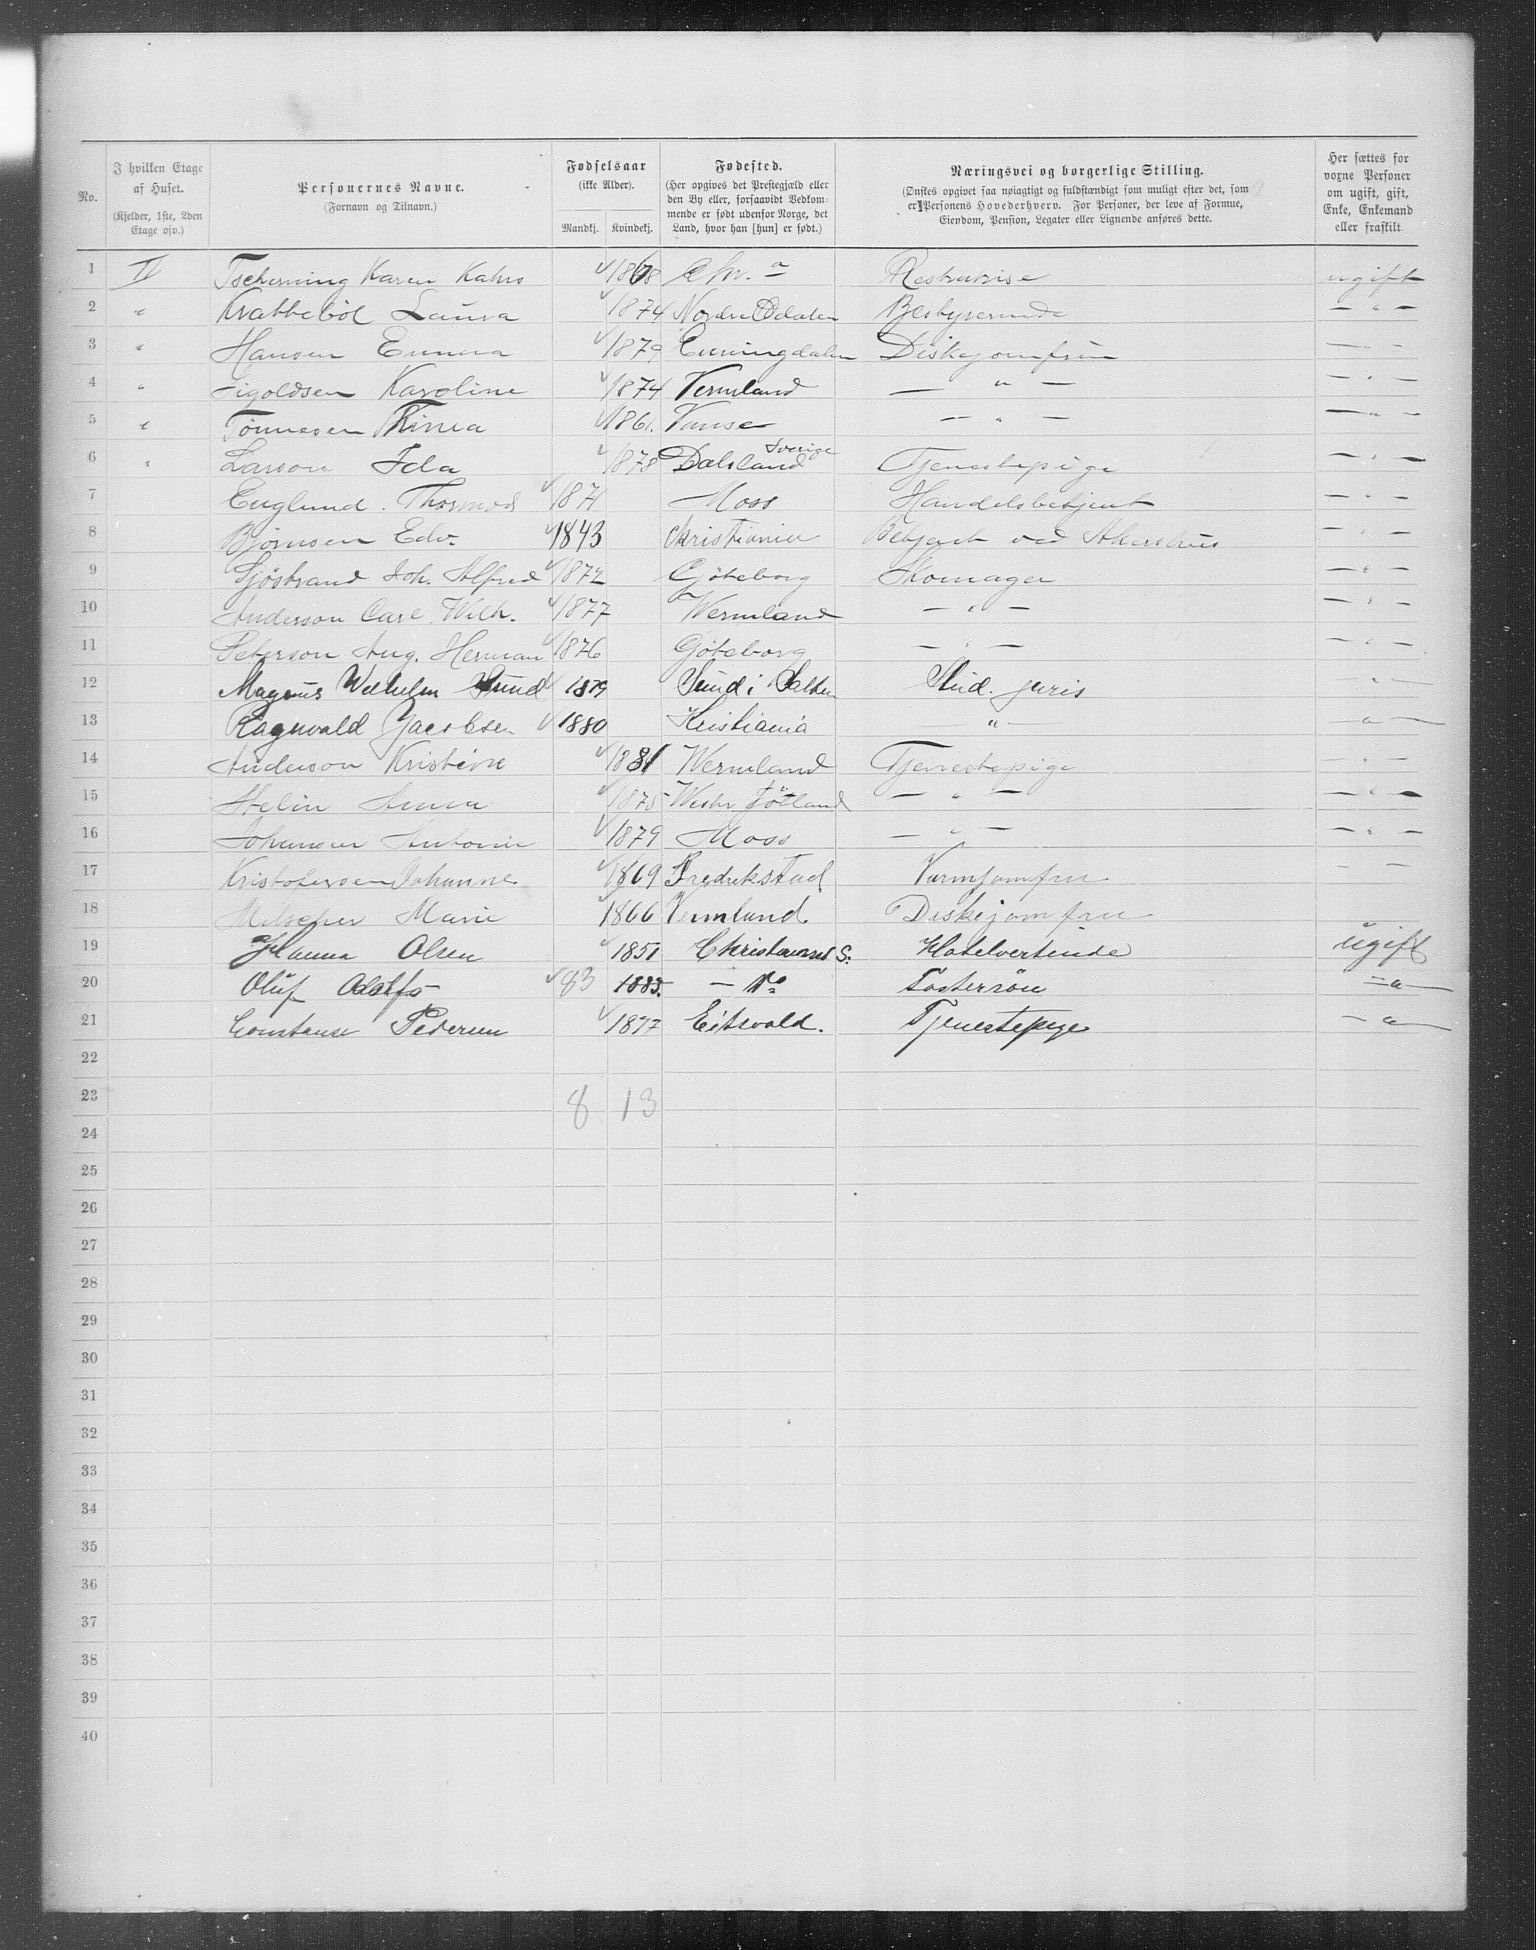 No.
I hvilken Etage af Huset. (Kjelder, 1ste, 2den Etage osv.)
Personernes Navne. (Fornavn og Tilnavn.)
Fødselsaar (ikke Alder). Mandkj. Kvindekj.
Fødested. (Her opgives det Prestegjæld eller den By eller, forsaavidt Vedkommende er født udenfor Norge, det Land, hvor han [hun] er født.)
Næringsvei og borgerlige Stilling. (Ønskes opgivet saa nøiagtigt og fuldstændigt som muligt efter det, som er Personens Hovederhverv. For Personer, der leve af Formue, Eiendom, Pension, Legater eller Lignende anføres dette.
Her sættes for voxne Personer om ugift, gift, Enke, Enkemand eller fraskilt.
1 Tscherning Karen 1868 Chr.a ugift
2 " Krabbebøl Laura 1874 Nordre Odalen Bestyrerinde — " —
3 " Hansen Emma 1879 Enningdalen Diskejomfru — " —
4 " Karoline 1874 Vermland — " — — " —
5 " Tønnesen 1861. Vanse — " — — " —
6 " Larson Ida 1878 Dalsland Sverige Tjenestepige — " —
7 Englund. Thormod 1871 Moss Handelsbetjent — " —
8 Bjørnsen Edv. 1843 Kristiania Betjent ved Akershus — " —
9 Sjöstrand Joh. Alfred 1872 Gjöteborg Skomager — " —
10 Anderson Carl Wilh. 1877 Wermland — " — — " —
11 Peterson Aug. Herman 1876 Göteborg — " — — " —
12 Magnus Wilhelm Sund 1879 Sund i Salten Stud. juris — " —
13 Ragnvald Jacobsen 1880 Kristiania " — — " —
14 Anderson Kristine 1881 Wermland Tjenestepige — " —
15 Anna 1875 — " — — " —
16 Johansen Antonie 1879 Moss — " — — " —
17 Kristofersen Johanne 1869 Fredrikstad Varmjomfru — —
18 Marie 1866 Vermland. Diskejomfru
19 Hanna Olsen 1851 Christianssd S. Hotelvertinde ugift
20 Oluf Adolfs 83 1883. — Do Fostersøn — " —
21 Constanse Pedersen 1877 Eidsvold. Tjenestepige — " —
22
23 8 13
24
25
26
27
28
29
30
31
32
33
34
35
36
37
38
39
40